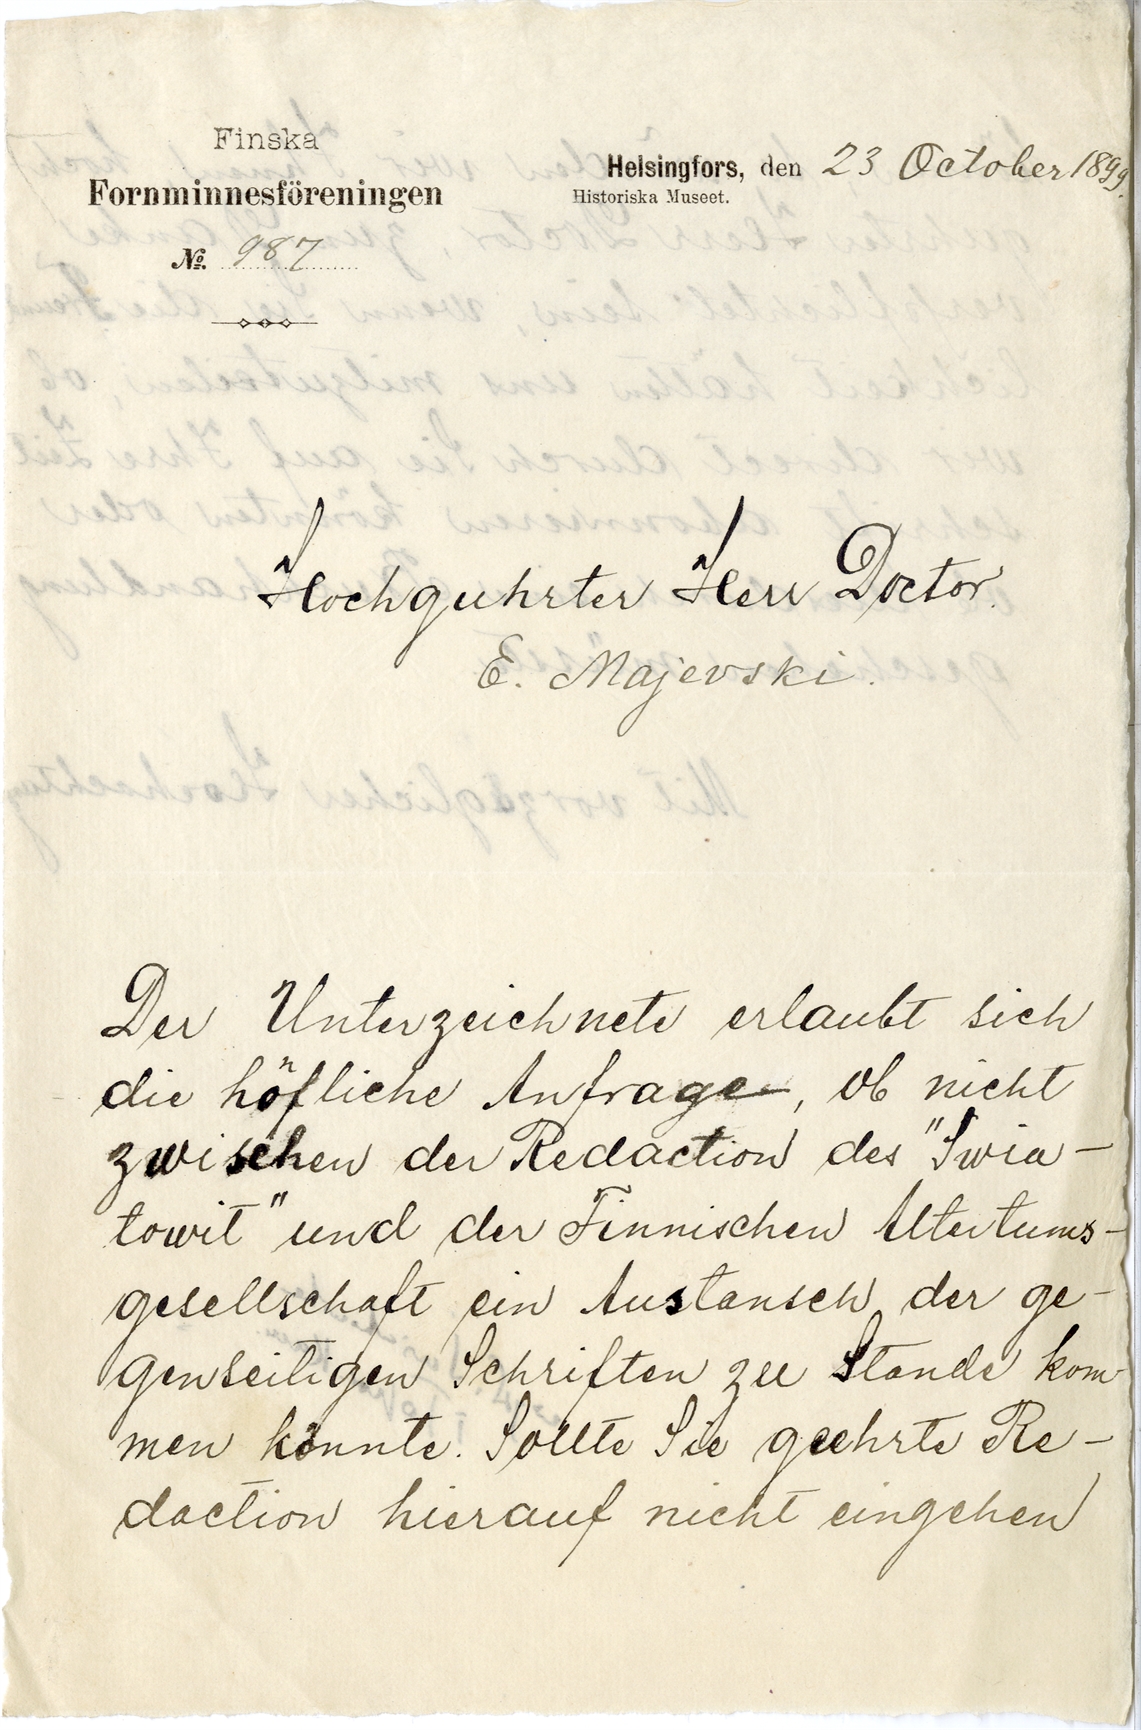 Finska
Fornminnesföreningen
No. 987
Helsingfors, den 23 October 1899.
Historiska Museet.
Hochgeehrter Herr Doctor.
E. Majevski.
Der Unterzeichnete erlaubt sich
die höfliche Anfrage, ob nicht
zwischen der Redaction des "Swia-
towit" und der Finnischen Altertums-
gesellschaft ein Austausch der ge-
genseitigen Schriften zu Stande kom-
men könnte. Sollte Sie geehrte Re-
daction hierauf nicht eingehen